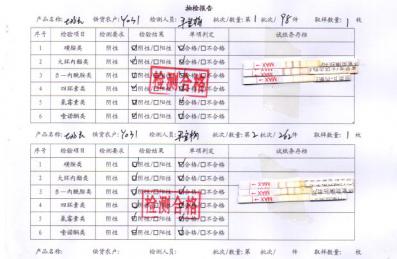 抽检报告
产品名称: 供货农户: 检测人员: 批次/数量: 第 1 批次/ 98 件 取样数量: 1 枚
序号 检验项目 检测要求 检验结果 单项判定 试纸条存档
1 磺胺类 阴性 ☑阴性/□阳性 ☑合格/□不合格
2 大环内酯类 阴性 ☑阴性/□阳性 ☑合格/□不合格
3 β-内酰胺类 阴性 ☑阴性/□阳性 ☑合格/□不合格
4 四环素类 阴性 ☑阴性/□阳性 ☑合格/□不合格
5 氟霉素类 阴性 ☑阴性/□阳性 ☑合格/□不合格
6 喹诺酮类 阴性 ☑阴性/□阳性 ☑合格/□不合格
检测合格
MAX
MAX
产品名称: 供货农户: 检测人员: 批次/数量: 第 2 批次/ 件 取样数量: 1 枚
序号 检验项目 检测要求 检验结果 单项判定 试纸条存档
1 磺胺类 阴性 ☑阴性/□阳性 ☑合格/□不合格
2 大环内酯类 阴性 ☑阴性/□阳性 ☑合格/□不合格
3 β-内酰胺类 阴性 ☑阴性/□阳性 ☑合格/□不合格
4 四环素类 阴性 ☑阴性/□阳性 ☑合格/□不合格
5 氟霉素类 阴性 ☑阴性/□阳性 ☑合格/□不合格
6 喹诺酮类 阴性 ☑阴性/□阳性 ☑合格/□不合格
检测合格
MAX
MAX
产品名称: 供货农户: 检测人员: 批次/数量: 第 批次/ 件 取样数量: 枚